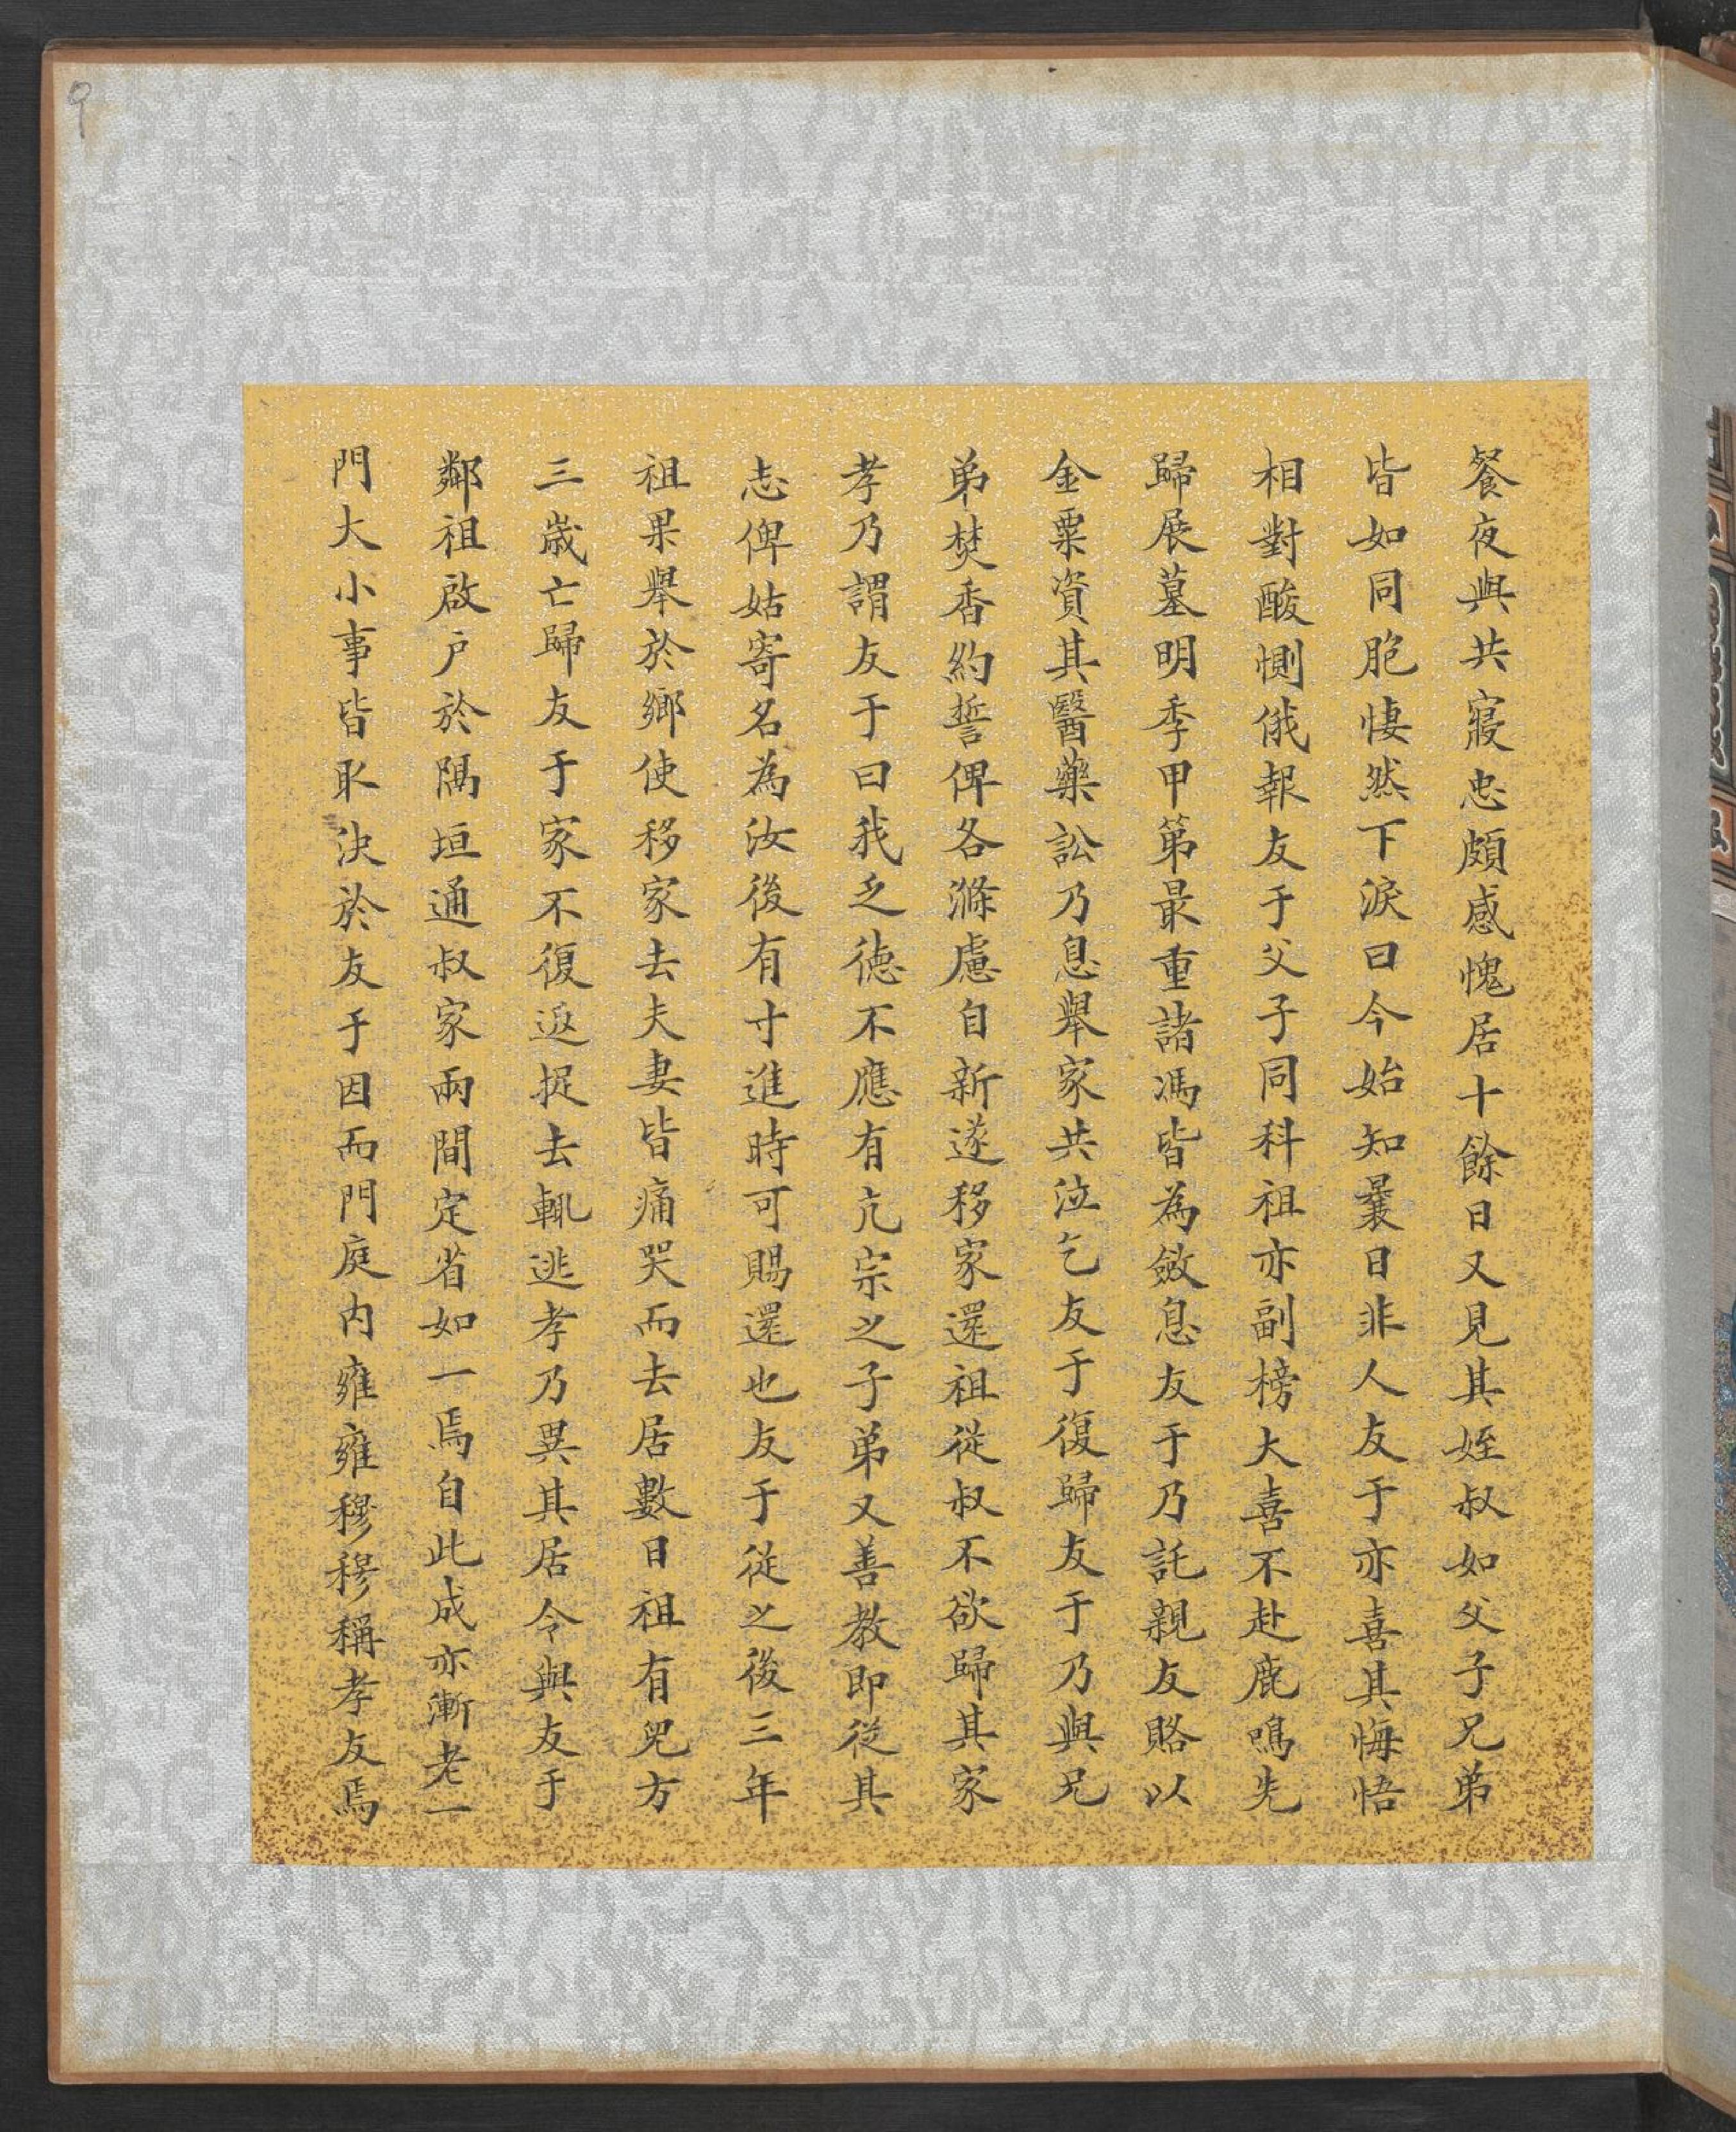 9
餐夜與共寢忠頗感愧居十餘日又見其姪叔如父子兄弟
皆如同胞悽然下淚曰今始知曩日非人友于亦喜其悔悟
相對酸惻俄報友于父子同科祖亦副榜大喜不赴鹿鳴先
歸展墓明季甲第最重諸馮皆為斂息友于乃託親友賂以
金粟資其醫藥訟乃息舉家共泣乞友于復歸友于乃與兄
弟焚香約誓俾各滌慮自新遂移家還祖從叔不欲歸其家
孝乃謂友于曰我乏德不應有亢宗之子弟又善教即從其
志俾姑寄名為汝後有寸進時可賜還也友于從之後三年
祖果舉於鄉使移家去夫妻皆痛哭而去居數日祖有兒方
三歲亡歸友于家不復返捉去輒逃孝乃異其居令與友于
鄰祖啟戶於隔垣通叔家兩間定省如一焉自此成亦漸老一
門大小事皆取決於友于因而門庭內雍雍穆穆稱孝友焉